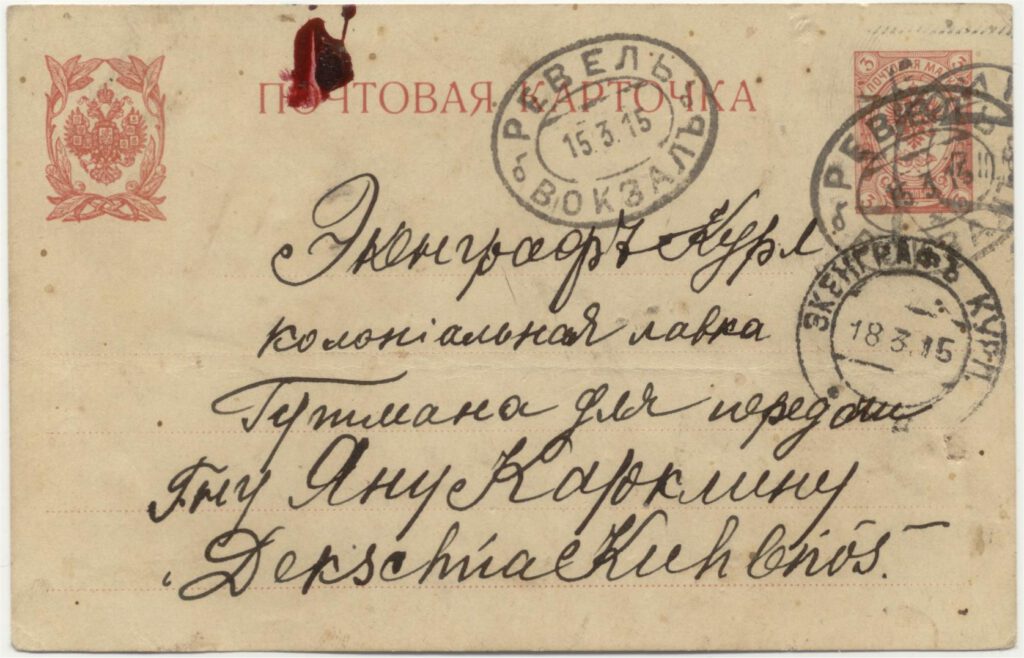 ПОЧТОВАЯ КАРТОЧКА
РЕВЕЛЬ
15.3.15
ВОКЗАЛЪ
3 ПОЧТОВАЯ МАРКА 3
РЕВЕЛЬ
15.3.15
ВОКЗАЛЪ
Экенграфъ Курл
колоніальная лавка
Гутмана для передачи
Гну Яну Карклину
"Dekschna Kuhlnös"
ЭКЕНГРАФЪ КУРЛ.
18.3.15